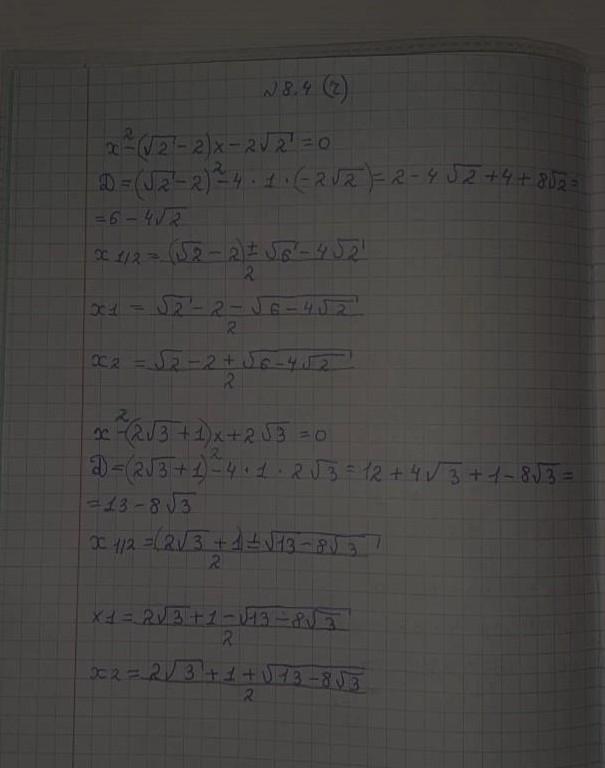 №8.4 (2)
x²-(√2-2)x-2√2=0
D=(√2-2)²-4·1·(-2√2)=2-4√2+4+8√2=
=6-4√2
x1/2=(√2-2)±√6-4√2
2
x1=√2-2-√6-4√2
2
x2=√2-2+√6-4√2
2
x²-(2√3+1)x+2√3=0
D=(2√3+1)²-4·1·2√3=12+4√3+1-8√3=
=13-8√3
x1/2=(2√3+1)±√13-8√3
2
x1=2√3+1-√13-8√3
2
x2=2√3+1+√13-8√3
2